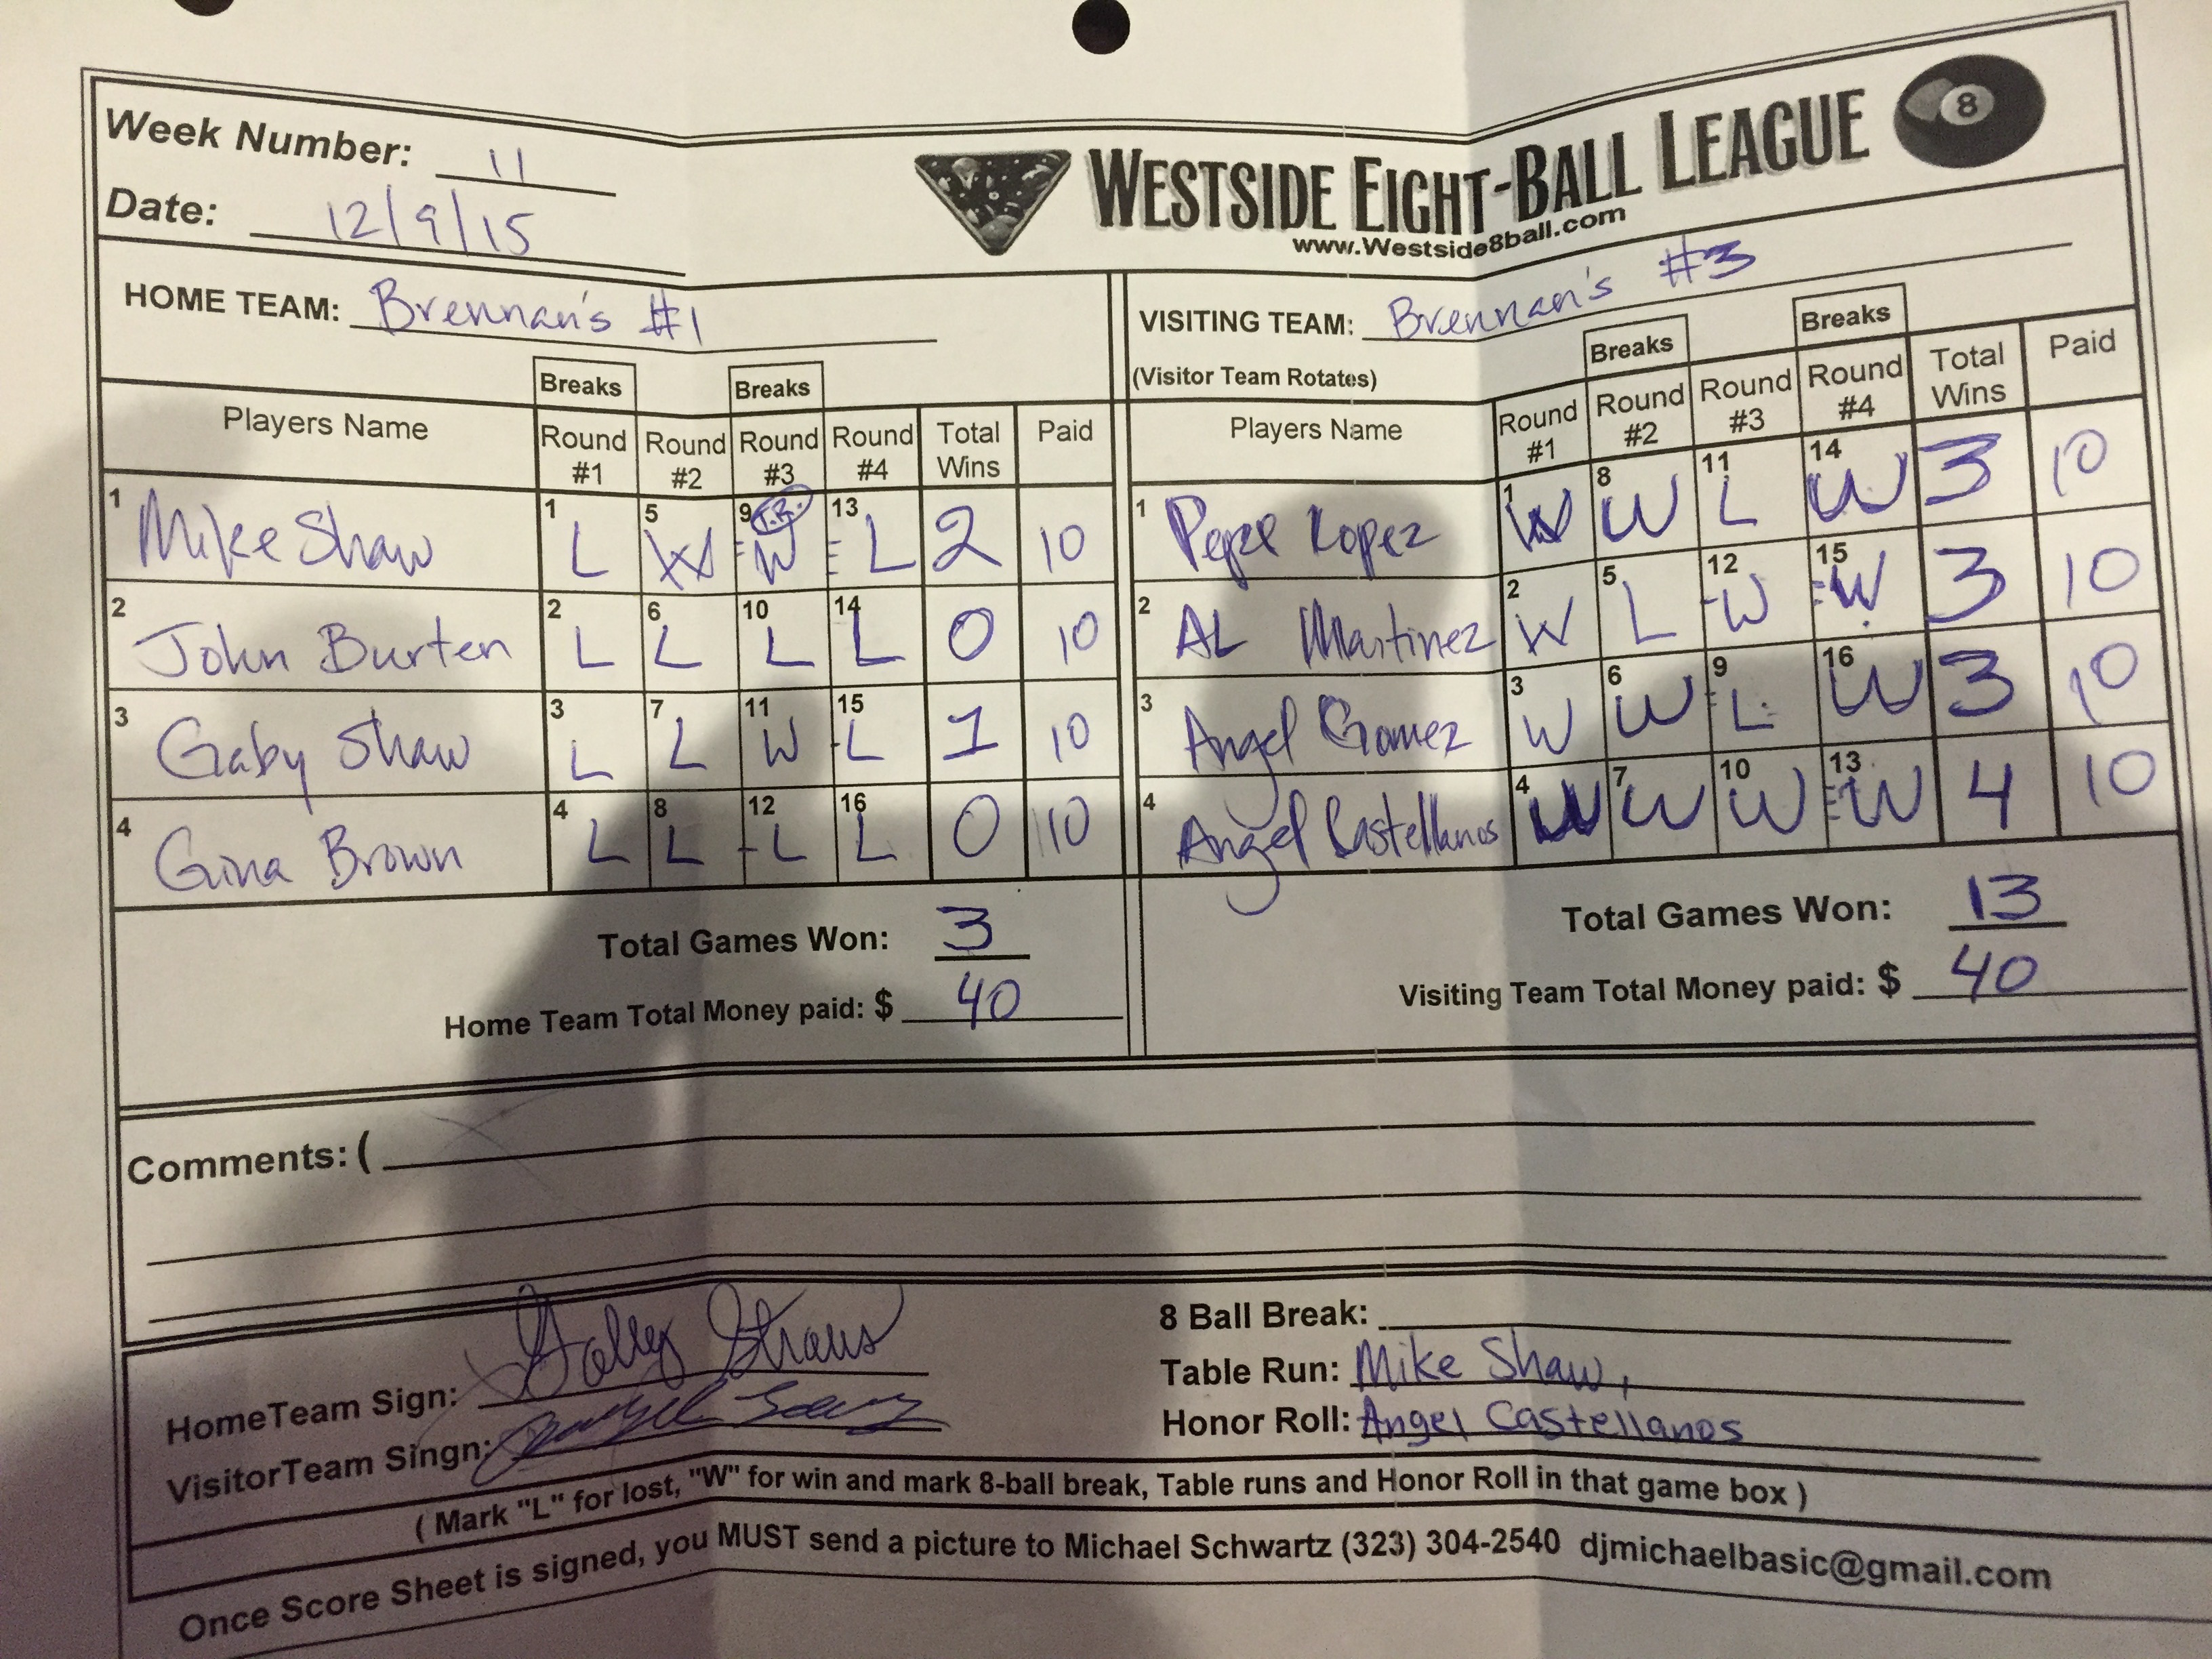 Week Number: 11
Date: 12/9/15
WESTSIDE EIGHT-BALL LEAGUE 8
www.Westside8ball.com
HOME TEAM: Brennan's #1
VISITING TEAM: Brennan's #3
(Visitor Team Rotates)
Breaks Breaks
Players Name Round #1 Round #2 Round #3 Round #4 Total Wins Paid
1 Mike Shaw 1 L 5 W 9 T.R. W 13 L 2 10
2 John Burten 2 L 6 L 10 L 14 L 0 10
3 Gaby Shaw 3 L 7 L 11 W 15 L 1 10
4 Gina Brown 4 L 8 L 12 L 16 L 0 10
Total Games Won: 3
Home Team Total Money paid: $ 40
Breaks Breaks
Players Name Round #1 Round #2 Round #3 Round #4 Total Wins Paid
1 Pepe Lopez 1 W 8 W 11 L 14 W 3 10
2 AL Martinez 2 W 5 L 12 W 15 W 3 10
3 Angel Gomez 3 W 6 W 9 L 16 W 3 10
4 Angel Castellanos 4 W 7 W 10 W 13 W 4 10
Total Games Won: 13
Visiting Team Total Money paid: $ 40
Comments: (
HomeTeam Sign:
VisitorTeam Singn:
8 Ball Break:
Table Run: Mike Shaw,
Honor Roll: Angel Castellanos
( Mark "L" for lost, "W" for win and mark 8-ball break, Table runs and Honor Roll in that game box )
Once Score Sheet is signed, you MUST send a picture to Michael Schwartz (323) 304-2540 djmichaelbasic@gmail.com